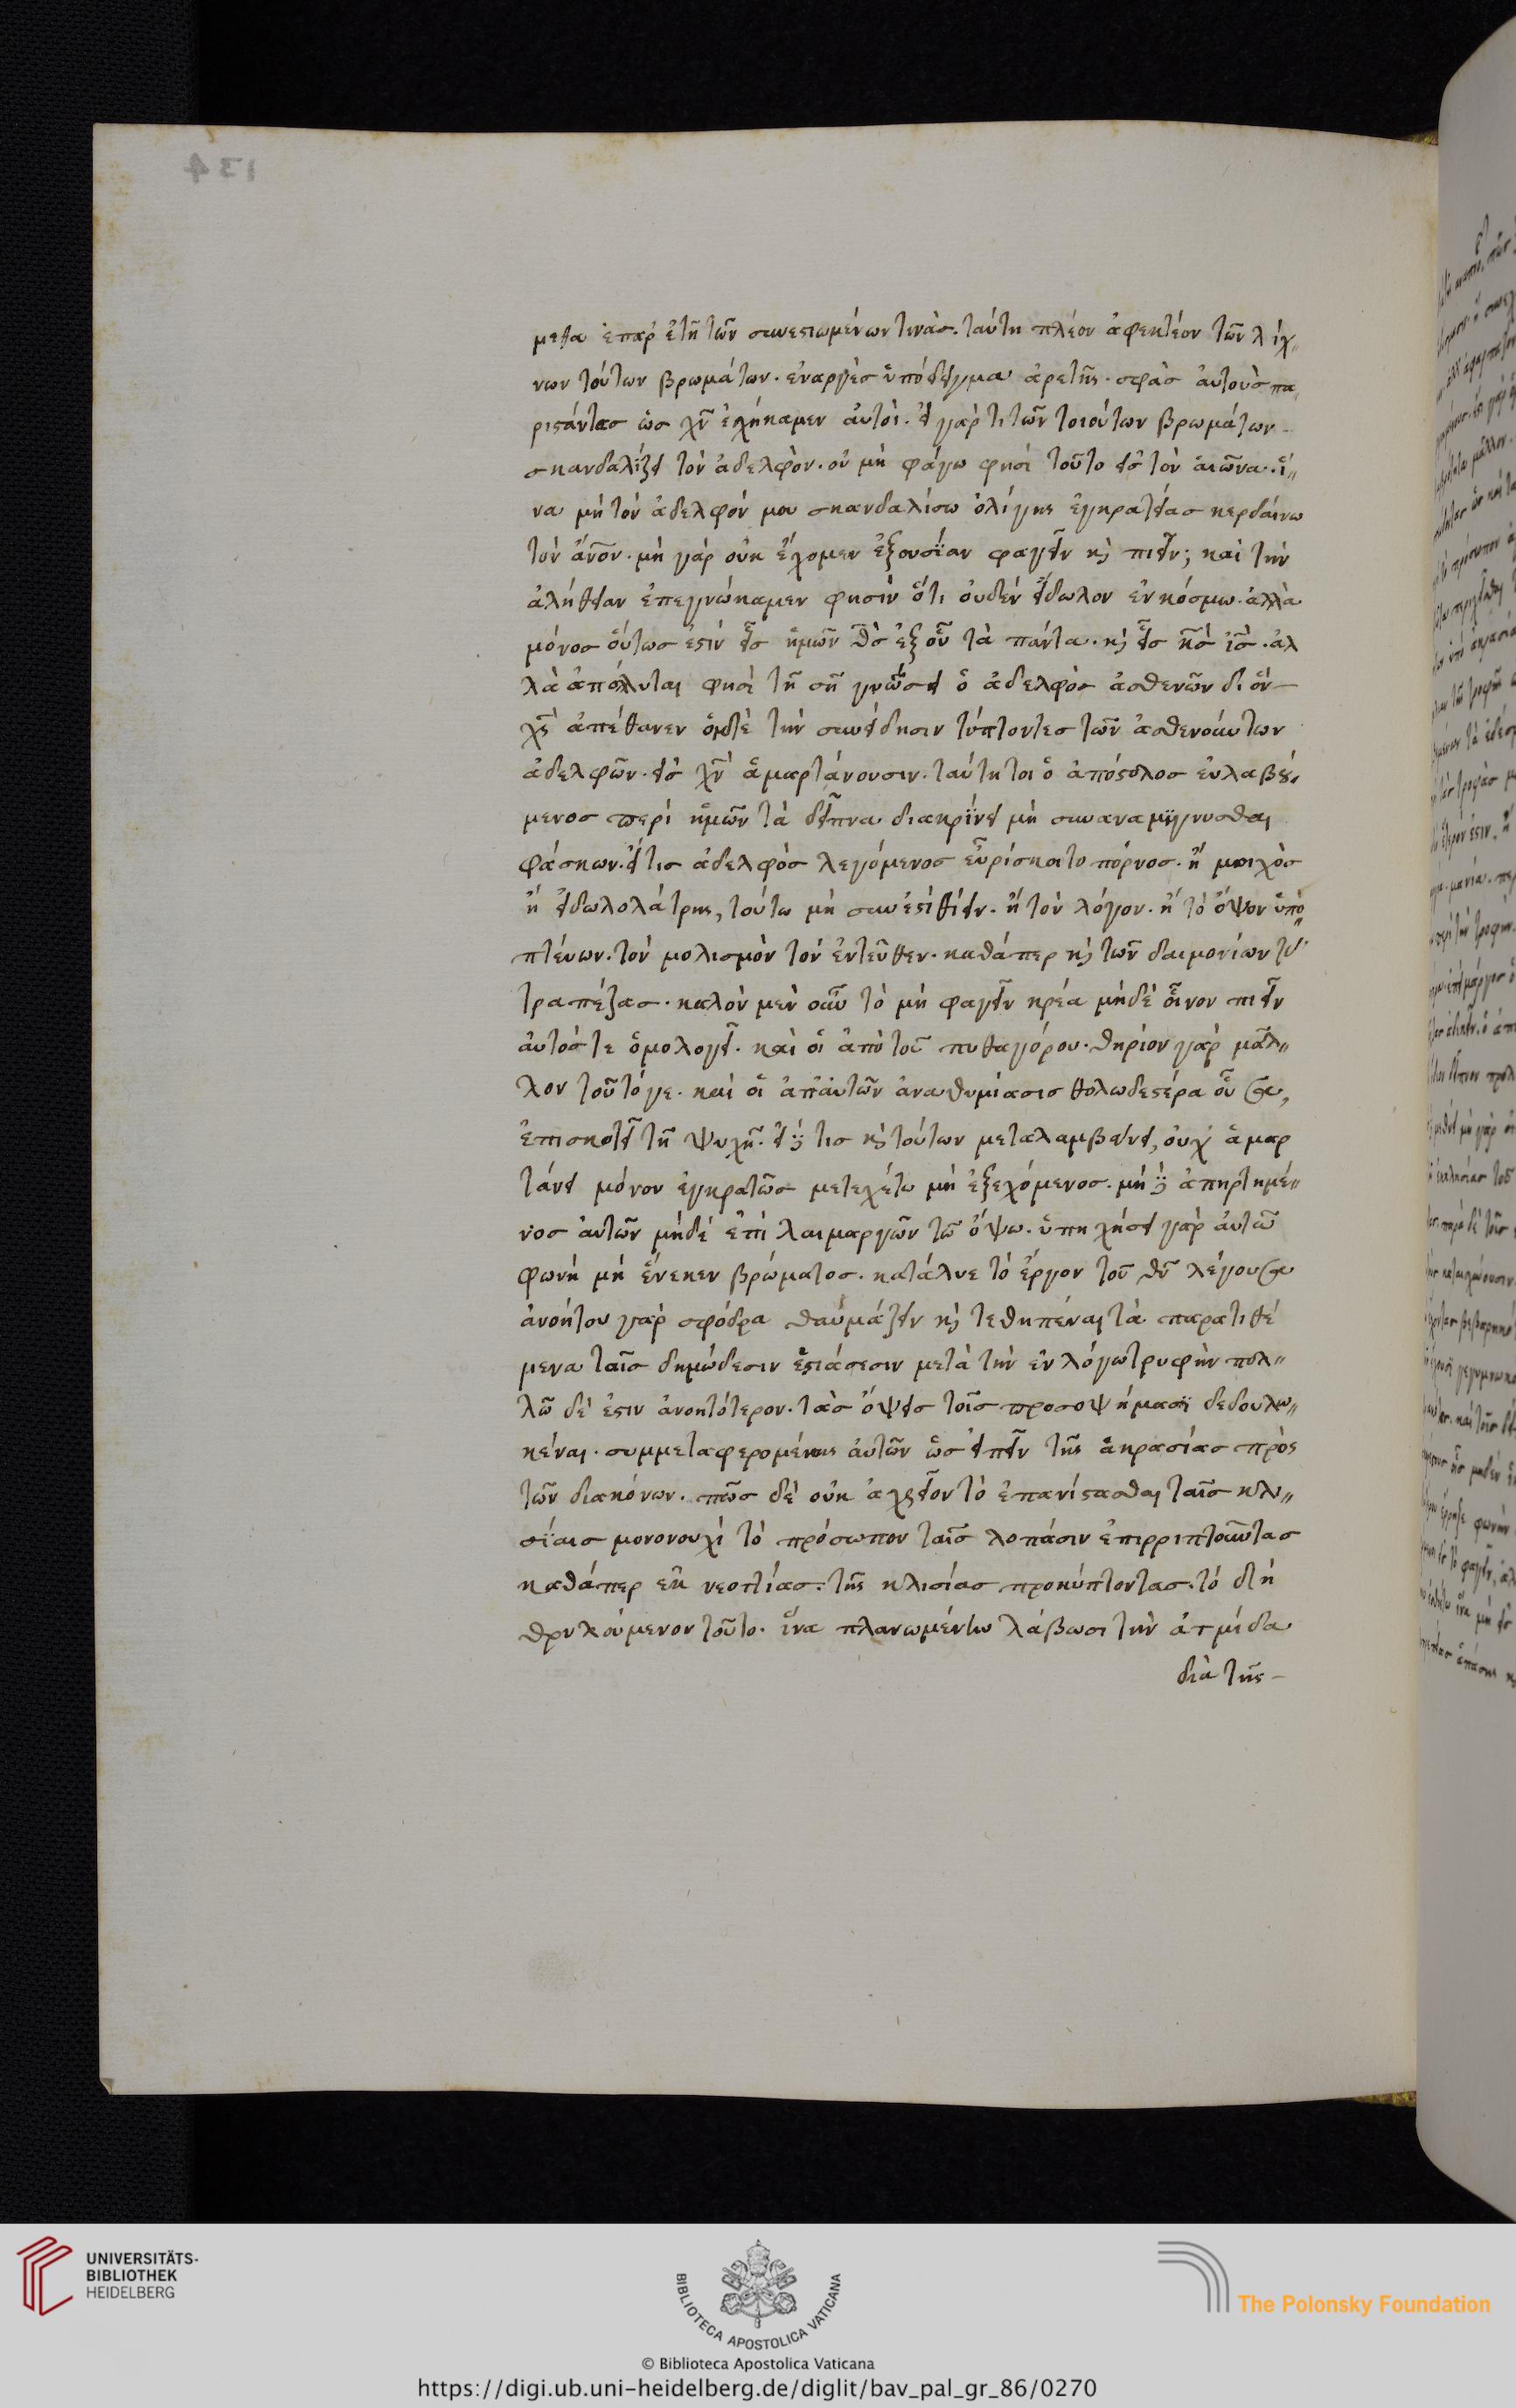 134
μεθα ἐπαρ' ἐτῇ τῶν συνεστιωμένων τινὰσ. ταύτη πλέον ἀφεκτέον τῶν λίχ„
νων τούτων βρωμάτων. ἐναργὲσ ὑπόδειγμα ἀρετῆς. σφᾶσ ἀυτοὺσ πα„
ριστάντασ ὡσ χν̅ ἐχήκαμεν ἀυτόι. εἰ γάρ τι τῶν τοιούτων βρωμάτων
σκανδαλίζει τὸν ἀδελφὸν. οὐ μὴ φάγω φησὶ τοῦτο εἰσ τὸν ἀιῶνα. ἵ„
να μὴ τὸν ἀδελφόν μου σκανδαλίσω ὀλίγης ἐγκρατείασ κερδαίνω
τὸν ἄνον̅. μὴ γὰρ οὐκ ἔχομεν ἐξουσίαν φαγεῖν κὶ πιεῖν; καὶ τὴν
ἀλήθειαν ἐπεγνώκαμεν φησὶν ὅτι ὀυδέν εἴδωλον ἐν κόσμω. ἀλλὰ
μόνοσ ὄντωσ ἐστὶν εἷσ ἡμῶν θσ̅ ἐξ οὗ τὰ πάντα. κὶ εἷσ κσ̅ ἰσ̅. ἀλ
λὰ ἀπόλλυται φησὶ τῇ σῇ γνώσει ὁ ἀδελφὸσ ἀσθενῶν δι ὃν
χσ̅ ἀπέθανεν ὁι δὲ τὴν συνείδησιν τύπτοντεσ τῶν ἀσθενούντων
ἀδελφῶν. εἰσ χν̅ ἁμαρτάνουσιν. ταύτη τοι ὁ ἀπόστολοσ ἐυλαβού„
μενοσ περὶ ἡμῶν τὰ δεῖπνα διακρίνει μὴ συναναμίγνυσθαι
φάσκων. εἴ τισ ἀδελφὸσ λεγόμενοσ εὑρίσκοιτο πόρνοσ. ἢ μοιχὸσ
ἢ εἰδωλολάτρης, τούτω μὴ συνεσθίειν. ἢ τὸν λόγον. ἢ τὸ ὄψον ὑπο„
πτέυων. τὸν μολισμὸν τὸν ἐντεῦθεν. καθάπερ κὶ τῶν δαιμονίων τὰσ
τραπέζασ. καλὸν μὲν οὖν τὸ μὴ φαγεῖν κρέα μὴδὲ ὄινον πιεῖν
ἀυτόσ τε ὁμολογεῖ. καὶ ὁι ἀπὸ τοῦ πυθαγόρου. θηρίον γὰρ μᾶλ„
λον τοῦτόγε. καὶ ὁι ἀπ ἀυτῶν ἀναθυμίασισ θολωδεστέρα οὖσα,
ἐπισκοτεῖ τῇ ψυχῇ. εἰ δέ τισ κὶ τούτων μεταλαμβάνει, ὀυχ ἁμαρ
τάνει μόνον ἐγκρατῶσ μετεχέτω μὴ ἐξεχόμενοσ. μὴ δὲ ἀπηρτημέ„
νοσ ἀυτῶν μὴδέ ἐπὶ λαιμαργῶν τῶ ὄψω. ὑπηχήσει γὰρ ἀυτῶ
φωνὴ μὴ ἕνεκεν βρώματοσ. κατάλυε τὸ ἔργον τοῦ θυ̅ λέγουσα
ἀνοήτου γὰρ σφόδρα θαυμάζειν κὶ τεθηπέναι τὰ παρατιθέ
μενα ταῖσ δημώδεσιν ἑστιάσεσιν μετὰ τὴν ἐν λόγω τρυφὴν πολ„
λῶ δέ ἐστιν ἀνοητότερον. τὰσ ὄψεισ τοῖσ προσοψήμασι δεδουλω„
κέναι. συμμεταφερομένης ἀυτῶν ὡσ εἰπεῖν τῆς ἀκρασίασ πρὸς
τῶν διακόνων. πῶσ δὲ οὐκ ἀχρεῖον τὸ ἐπανίστασθαι ταῖσ κλι„
σίαισ μονονουχὶ τὸ πρόσωπον ταῖσ λοπάσιν ἐπιρριπτοῦντασ
καθάπερ ἐκ νεοττίασ. τῆς κλισίασ προκύπτοντασ. τὸ δὴ
θρυλούμενον τοῦτο. ἵνα πλανωμένην λάβωσι τὴν ἀτμίδα
διὰ τῆς
UNIVERSITÄTS-
BIBLIOTHEK
HEIDELBERG
BIBLIOTECA APOSTOLICA VATICANA
The Polonsky Foundation
© Biblioteca Apostolica Vaticana
https://digi.ub.uni-heidelberg.de/diglit/bav_pal_gr_86/0270